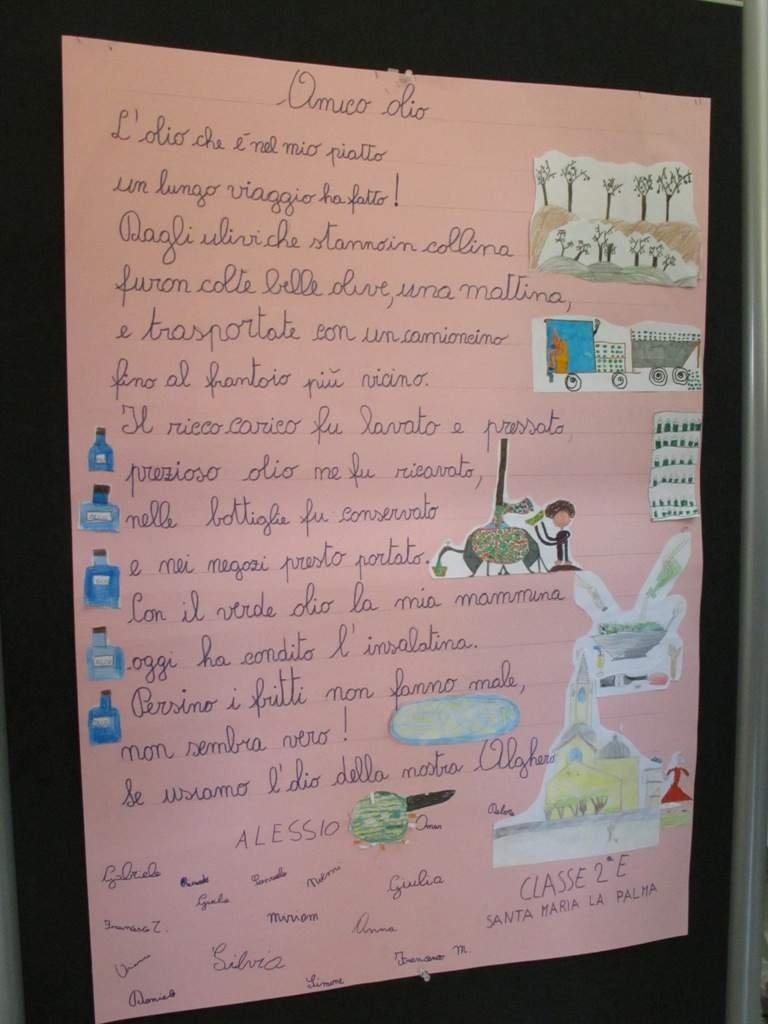 Amico olio
L'olio che é nel mio piatto
un lungo viaggio ha fatto!
Dagli ulivi che stanno in collina
furon colte belle olive, una mattina,
e trasportate con un camioncino
fino al frantoio più vicino.
Il ricco carico fu lavato e pressato,
prezioso olio ne fu ricavato,
nelle bottiglie fu conservato
e nei negozi presto portato.
Con il verde olio la mia mammina
oggi ha condito l'insalatina.
Persino i fritti non fanno male,
non sembra vero!
se usiamo l'olio della nostra Alghero
ALESSIO
Omar
Gabriele
Giulia
Giulia
CLASSE 2ª E
SANTA MARIA LA PALMA
Francesco Z.
Miriam
Anna
Silvia
Francesco M.
Simone
Daniele